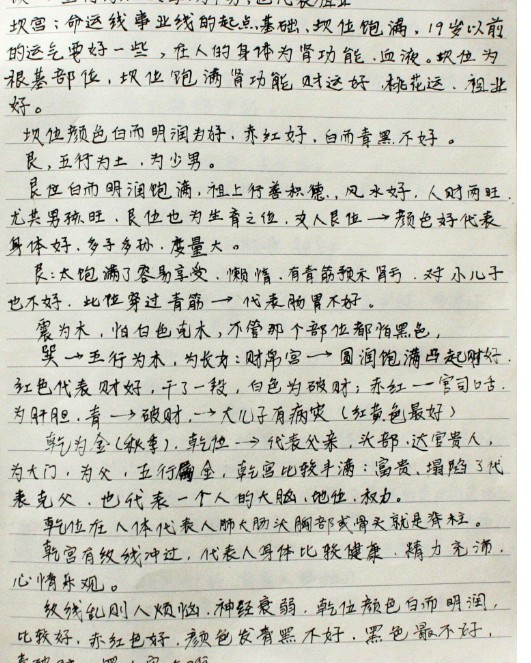 坎宫：命运线事业线的起点基础、坎位饱满，19岁以前
的运气要好一些，在人的身体为肾功能．血液。坎位为
根基部位，坎位饱满肾功能．财运好．桃花运．祖业
好。
坎位颜色白而明润为好．赤红好，白而青黑不好。
艮，五行为土．为少男。
艮位白而明润饱满，祖上行善积德．风水好，人财两旺．
尤其男孩旺．艮位也为生育之位．女人艮位→颜色好代表
身体好．多子多孙．度量大。
艮：太饱满了容易享受．懒惰．有青筋预示肾亏．对小儿子
也不好．此位穿过青筋→代表肠胃不好。
震为木，怕白色克木，不管那个部位都怕黑色，
巽→五行为木，为长女：财帛宫→圆润饱满凸起财好．
红色代表财好，干了一般，白色为破财；赤红一官司口舌．
为肝胆．青→破财．→大儿子有病灾（红黄色最好）
乾为金（秋季）．乾位→代表父亲，头部．达官贵人，
为大门，为父，五行属金，乾宫比较丰满：富贵、塌陷了代
表克父．也代表一个人的大脑、地位．权力。
乾位在人体代表人肺大肠头胸部或骨头就是脊柱。
乾宫有纹线冲过，代表人身体比较健康．精力充沛．
心情乐观。
纹线乱则人烦恼．神经衰弱．乾位颜色白而明润，
比较好．赤红色好．颜色发青黑不好．黑色最不好，